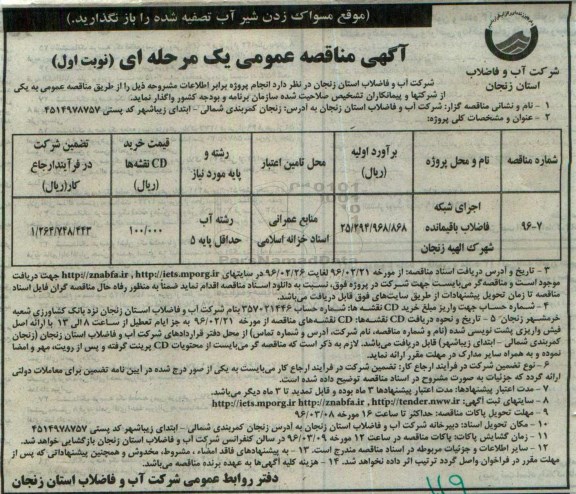 (موقع مسواک زدن شیر آب تصفیه شده را باز نگذارید.)
شرکت آب و فاضلاب
استان زنجان
آگهی مناقصه عمومی یک مرحله ای (نوبت اول)
شرکت آب و فاضلاب استان زنجان در نظر دارد انجام پروژه برابر اطلاعات مشروحه ذیل را از طریق مناقصه عمومی به یکی
از شرکتها و پیمانکاران تشخیص صلاحیت شده سازمان برنامه و بودجه کشور واگذار نماید.
۱ - نام و نشانی مناقصه گزار: شرکت آب و فاضلاب استان زنجان به آدرس: زنجان کمربندی شمالی - ابتدای زیباشهر کد پستی ۴۵۱۴۹۷۸۷۵۷
۲ - عنوان و مشخصات کلی پروژه:
شماره مناقصه
نام و محل پروژه
برآورد اولیه (ریال)
محل تامین اعتبار
رشته و پایه مورد نیاز
قیمت خرید CD نقشه‌ها (ریال)
تضمین شرکت در فرآیندارجاع کار(ریال)
۹۶-۷
اجرای شبکه فاضلاب باقیمانده شهرک الهیه زنجان
۲۵/۲۹۴/۹۶۸/۸۶۸
منابع عمرانی اسناد خزانه اسلامی
رشته آب حداقل پایه ۵
۱۰۰/۰۰۰
۱/۲۶۴/۷۴۸/۴۴۳
۳ - تاریخ و آدرس دریافت اسناد مناقصه: از مورخه ۹۶/۰۲/۲۱ لغایت ۹۶/۰۲/۲۶ در سایتهای http://znabfa.ir , http://iets.mporg.ir جهت دریافت
موجود است و مناقصه گر می‌بایست جهت شرکت در پروژه فوق، نسبت به دانلود اسناد مناقصه اقدام نماید ضمنا به منظور رفاه حال مناقصه گران فایل اسناد
مناقصه تا زمان تحویل پیشنهادات از طریق سایت‌های فوق قابل دریافت می‌باشد.
۴ - شماره حساب جهت واریز مبلغ خرید CD نقشه ها: شماره حساب ۳۵۷۰۳۱۴۴۶ بنام شرکت آب و فاضلاب استان زنجان نزد بانک کشاورزی شعبه
خرمشهر زنجان: ۵ - تاریخ و نحوه دریافت CD نقشه‌ها: CD نقشه‌های مناقصه از مورخه ۹۶/۰۲/۲۱ به جز ایام تعطیل از ساعت ۸ الی ۱۳ با ارائه اصل
فیش واریزی پشت نویسی شده (نام و شماره مناقصه، نام شرکت، آدرس و شماره تماس) از محل دفتر قراردادهای شرکت آب و فاضلاب استان زنجان (زنجان
کمربندی شمالی - ابتدای زیباشهر) قابل دریافت می‌باشد. لازم به ذکر است که مناقصه گر می‌بایست از محتویات CD پرینت گرفته و پس از رویت، مهر و امضا
نموده و به همراه سایر مدارک در مهلت مقرر ارائه نماید.
۶ - نوع تضمین شرکت در فرآیند ارجاع کار: تضمین شرکت در فرآیند ارجاع کار می‌بایست به یکی از صور درج شده در آیین نامه تضمین برای معاملات دولتی
ارائه گردد که جزئیات به صورت مشروح در اسناد مناقصه توضیح داده شده است.
۷ - مدت اعتبار پیشنهادها: مدت اعتبار پیشنهادها ۳ ماه بوده و قابل تمدید تا ۳ ماه دیگر می‌باشد.
۸ - سایتهای ثبت آگهی: http://iets.mporg.ir http://znabfa.ir , http://tender.nww.ir
۹ - مهلت تحویل پاکات مناقصه: حداکثر تا ساعت ۱۶ مورخه ۹۶/۰۳/۰۸
۱۰ - مکان تحویل اسناد: دبیرخانه شرکت آب و فاضلاب استان زنجان به آدرس زنجان کمربندی شمالی - ابتدای زیباشهر کد پستی ۴۵۱۴۹۷۸۷۵۷
۱۱ - زمان گشایش پاکات: پاکات مناقصه در ساعت ۱۲ مورخه ۹۶/۰۳/۰۹ در سالن کنفرانس شرکت آب و فاضلاب استان زنجان بازگشایی خواهد شد.
۱۲ - سایر اطلاعات و جزئیات مربوطه در اسناد مناقصه مندرج است. ۱۳ - به پیشنهادهای فاقد امضاء ، مشروط، مخدوش و همچنین پیشنهاداتی که پس از
مهلت مقرر در فراخوان واصل گردد ترتیب اثر داده نخواهد شد. ۱۴ - هزینه کلیه آگهی‌ها به عهده برنده مناقصه می‌باشد.
دفتر روابط عمومی شرکت آب و فاضلاب استان زنجان